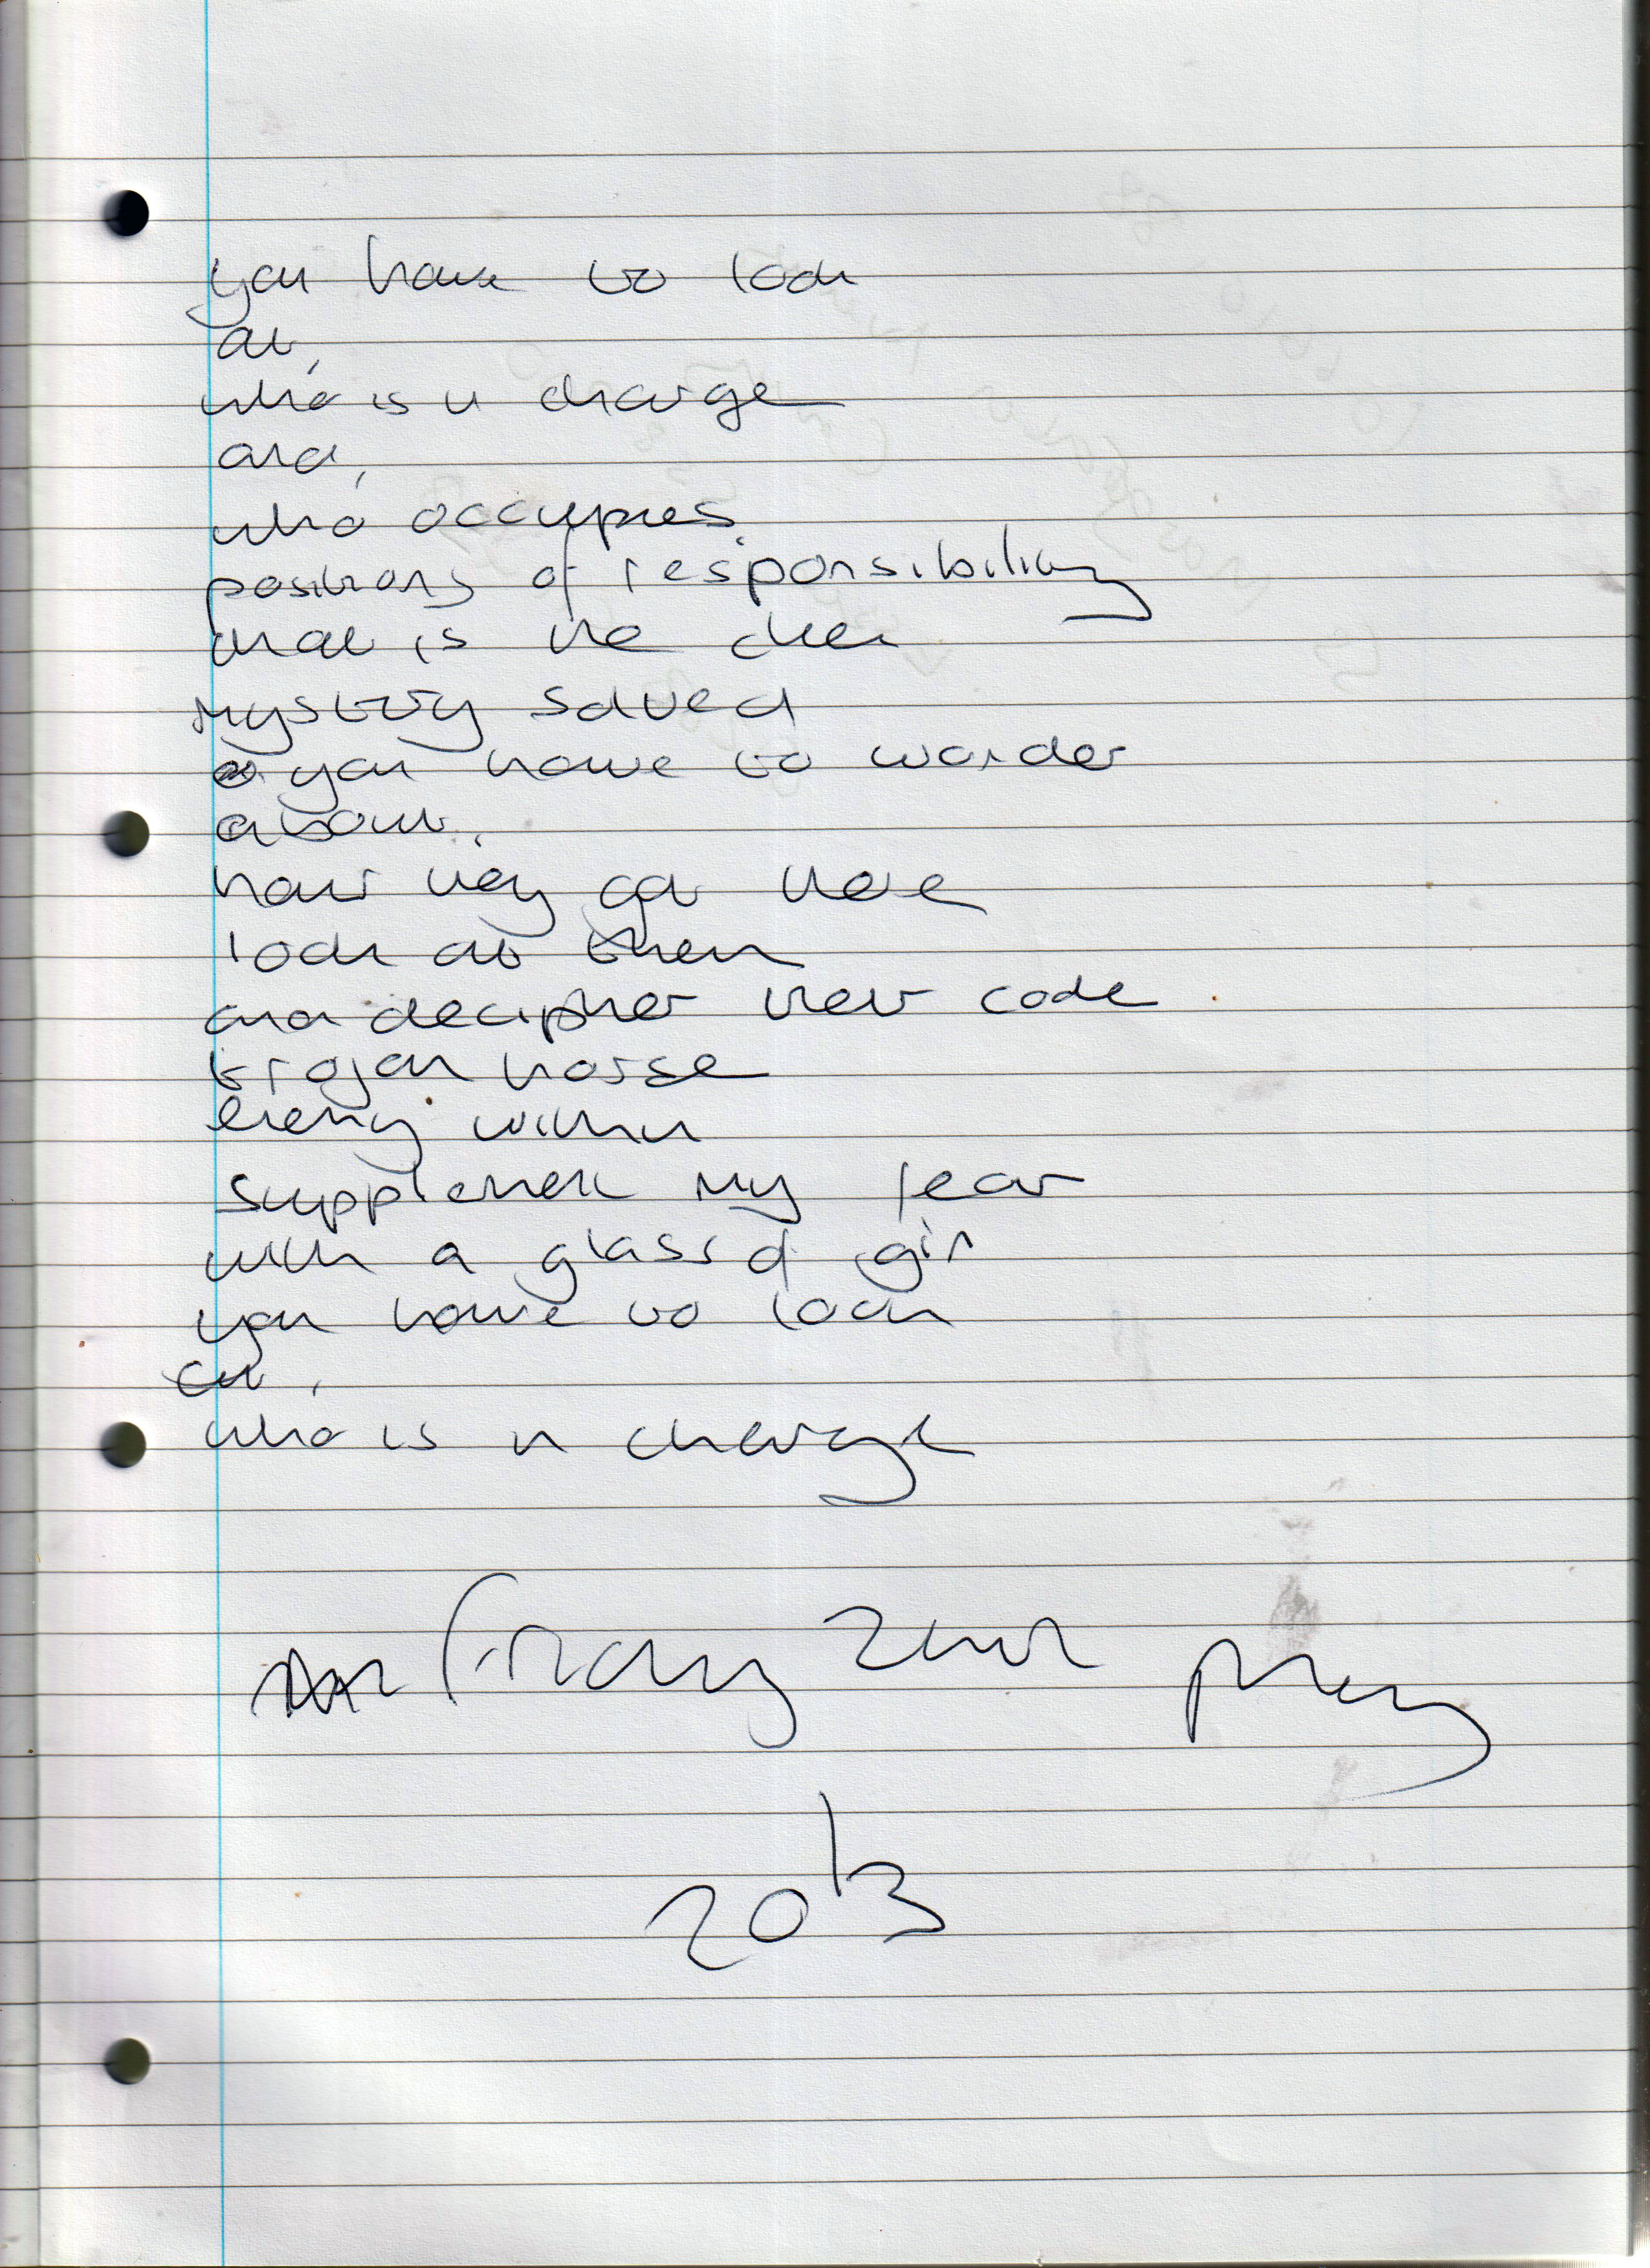 you have to look
at,
who is in charge
and,
who occupies
positions of responsibility
that is the clue
mystery solved
you have to wonder
about,
how they got there
look at them
and decipher their code
trojan horse
enemy within
supplement my fear
with a glass of gin
you have to look
at,
who is in charge
friday
2013